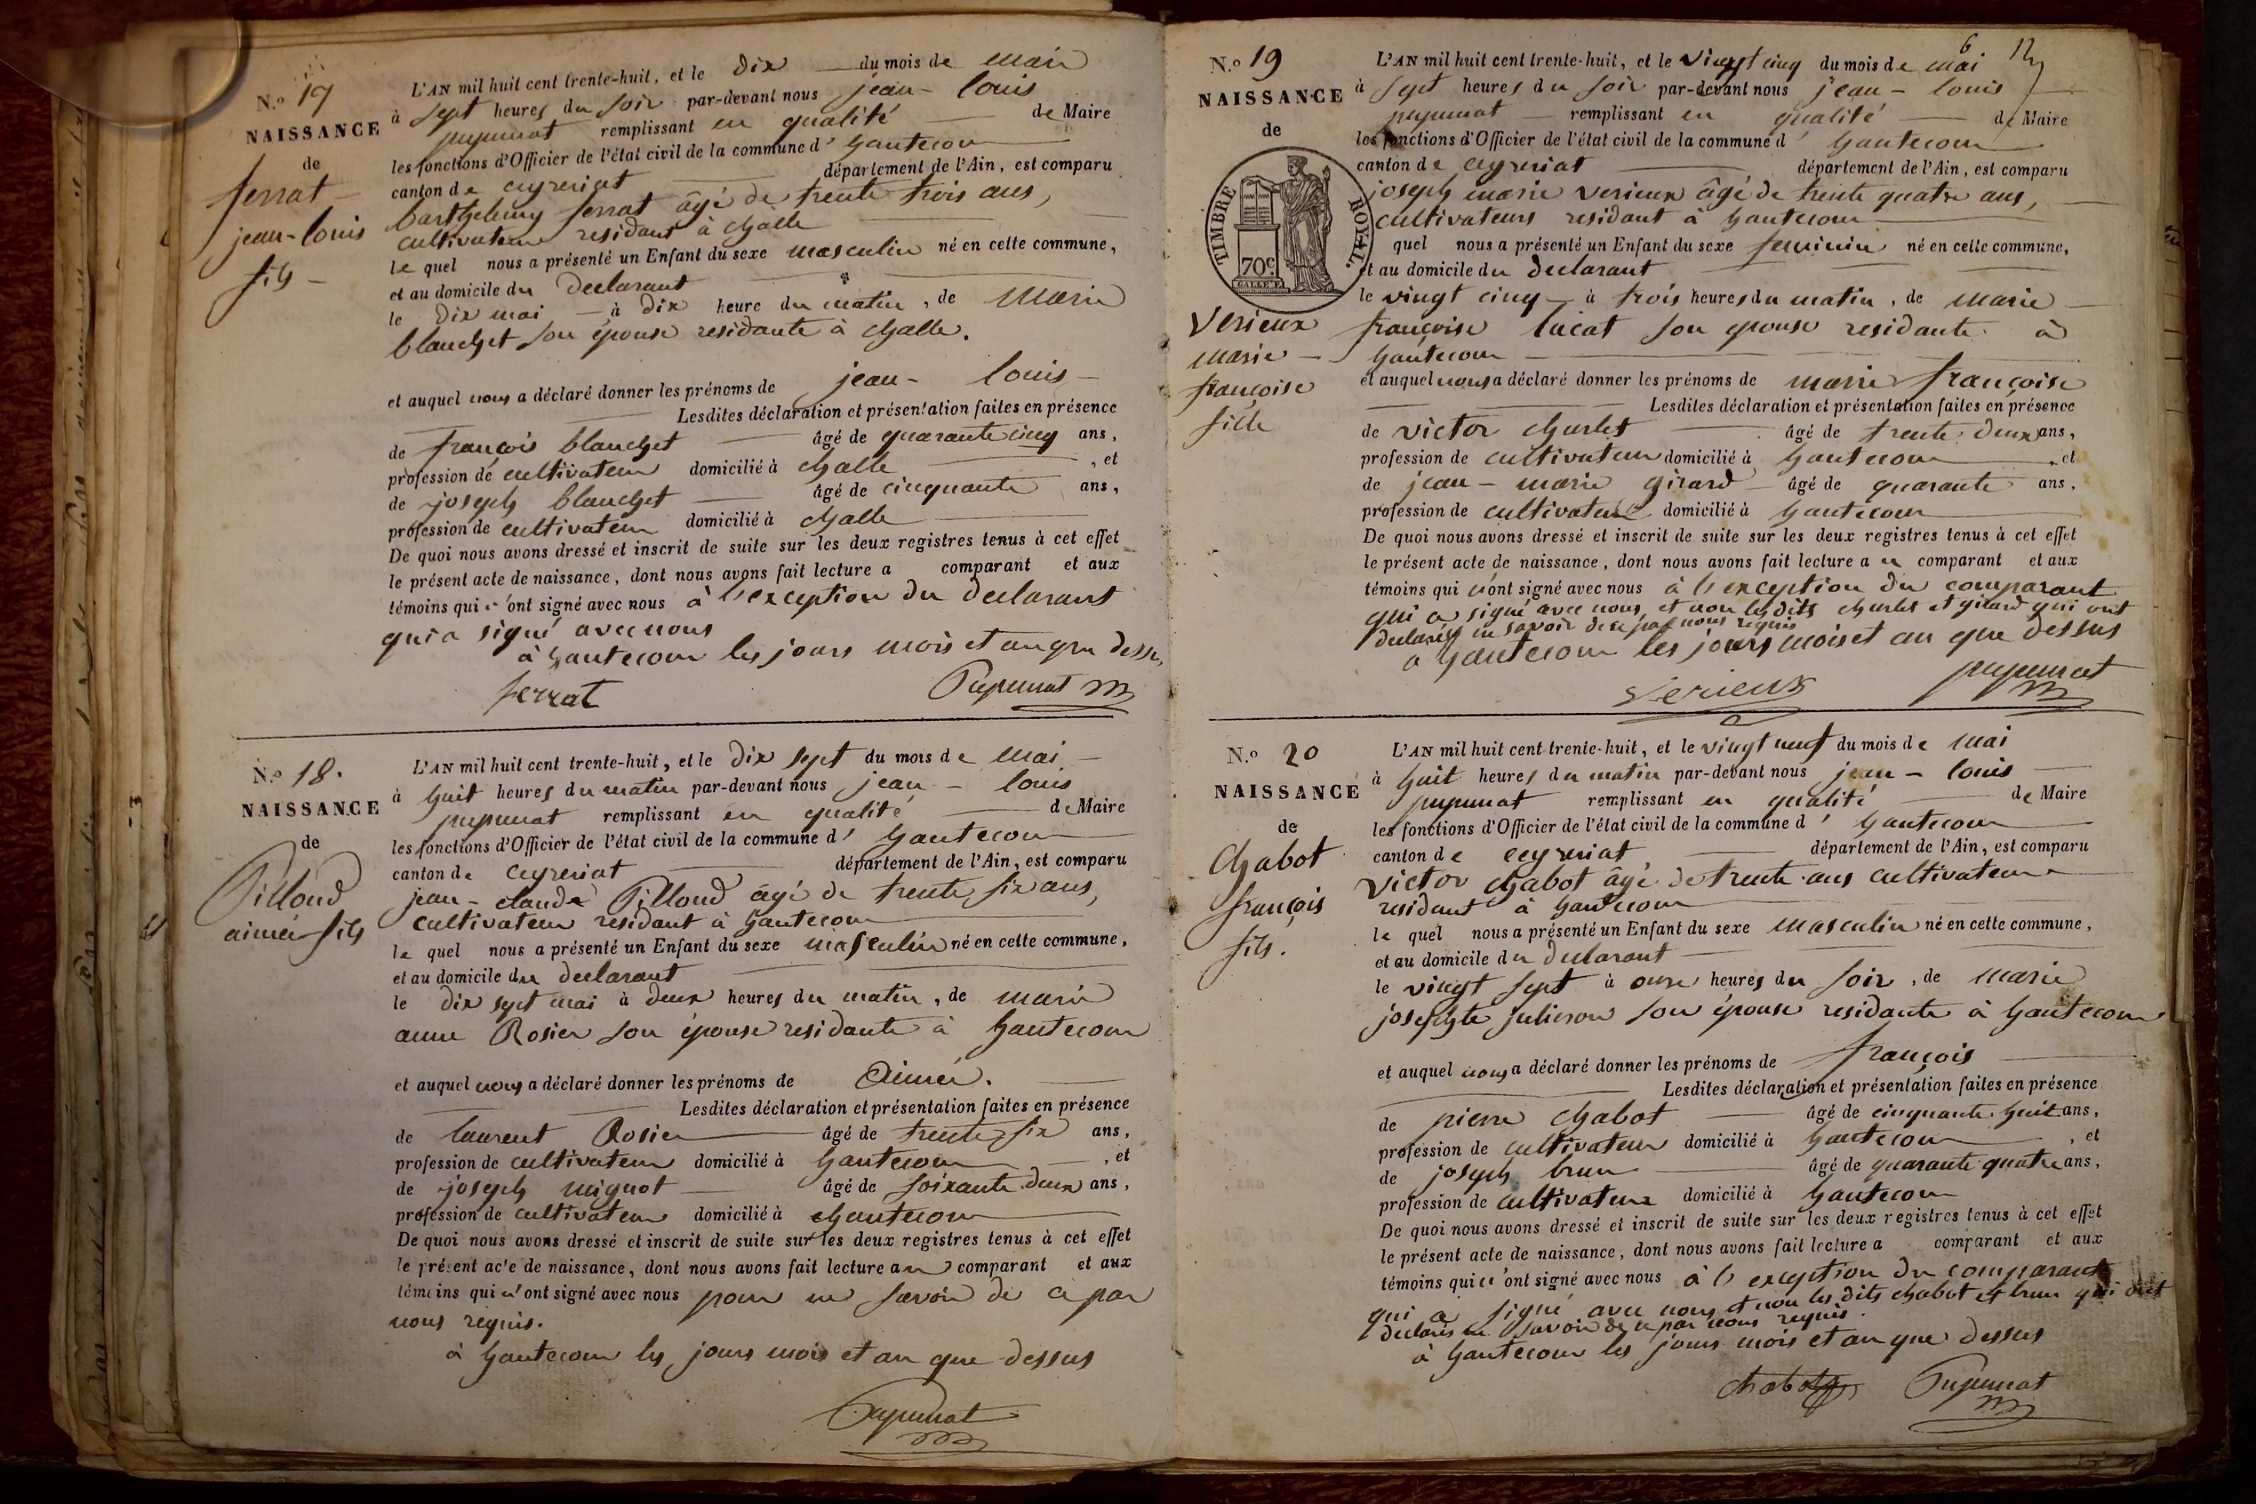 N.o 17
NAISSANCE
de
ferrat
jean-louis
fils
L'AN mil huit cent trente-huit, et le dix du mois de mai
à sept heures du soir par-devant nous jean-louis
pupunat remplissant en qualité de Maire
les fonctions d'Officier de l'état civil de la commune d'hautecour
canton de ceyzeriat département de l'Ain, est comparu
barthelemy ferrat âgé de trente trois ans,
cultivateur residant à challe
le quel nous a présenté un Enfant du sexe masculin né en cette commune,
et au domicile du declarant
le dix mai à dix heure du matin, de marie
blanchet son épouse residante à challe.
et auquel nous a déclaré donner les prénoms de jean-louis
Lesdites déclaration et présentation faites en présence
de françois blanchet âgé de quarante cinq ans,
profession de cultivateur domicilié à challe, et
de joseph blanchet âgé de cinquante ans,
profession de cultivateur domicilié à challe
De quoi nous avons dressé et inscrit de suite sur les deux registres tenus à cet effet
le présent acte de naissance, dont nous avons fait lecture a comparant et aux
témoins qui n'ont signé avec nous à l'exception du declarant
qui a signé avec nous
à hautecour les jours mois et an que dessus
ferrat Pupunat
N.o 18.
NAISSANCE
de
Pilloud
aimé fils
L'AN mil huit cent trente-huit, et le dix sept du mois de mai
à huit heures du matin par-devant nous jean-louis
pupunat remplissant en qualité de Maire
les fonctions d'Officier de l'état civil de la commune d'hautecour
canton de ceyzeriat département de l'Ain, est comparu
jean-claude Pilloud âgé de trente six ans,
cultivateur residant à hautecour
le quel nous a présenté un Enfant du sexe masculin né en cette commune,
et au domicile du declarant
le dix sept mai à deux heures du matin, de marie
anne Rosier son épouse residante à hautecour
et auquel nous a déclaré donner les prénoms de Aimé.
Lesdites déclaration et présentation faites en présence
de laurent Rosier âgé de trente six ans,
profession de cultivateur domicilié à hautecour, et
de joseph mignot âgé de soixante deux ans,
profession de cultivateur domicilié à hautecour
De quoi nous avons dressé et inscrit de suite sur les deux registres tenus à cet effet
le présent acte de naissance, dont nous avons fait lecture au comparant et aux
témoins qui n'ont signé avec nous pour ne savoir de ce par
nous requis.
à hautecour les jours mois et an que dessus
Pupunat
6 12
N.o 19
NAISSANCE
de
TIMBRE ROYAL.
70c
Verieux
marie
françoise
fille
L'AN mil huit cent trente-huit, et le vingt cinq du mois de mai
à sept heures du soir par-devant nous jean-louis
pupunat remplissant en qualité de Maire
les fonctions d'Officier de l'état civil de la commune d'hautecour
canton de ceyzeriat département de l'Ain, est comparu
joseph marie verieux âgé de trente quatre ans,
cultivateurs residant à hautecour
quel nous a présenté un Enfant du sexe feminin né en cette commune,
et au domicile du declarant
le vingt cinq à trois heures du matin, de marie
françoise lacat son epouse residante à
hautecour
et auquel nous a déclaré donner les prénoms de marie françoise
Lesdites déclaration et présentation faites en présence
de victor charlet âgé de trente deux ans,
profession de cultivateur domicilié à hautecour, et
de jean-marie girard âgé de quarante ans,
profession de cultivateur domicilié à hautecour
De quoi nous avons dressé et inscrit de suite sur les deux registres tenus à cet effet
le présent acte de naissance, dont nous avons fait lecture a u comparant et aux
témoins qui n'ont signé avec nous à l'exception du comparant
qui a signé avec nous et non lesdits charlet et girard qui ont
declarés ne savoir de ce par nous requis
à hautecour les jours mois et an que dessus
Verieux pupunat
N.o 20
NAISSANCE
de
Chabot
françois
fils.
L'AN mil huit cent trente-huit, et le vingt neuf du mois de mai
à huit heures du matin par-devant nous jean-louis
pupunat remplissant en qualité de Maire
les fonctions d'Officier de l'état civil de la commune d'hautecour
canton de ceyzeriat département de l'Ain, est comparu
victor chabot âgé de trente ans cultivateur
residant à hautecour
le quel nous a présenté un Enfant du sexe masculin né en cette commune,
et au domicile du declarant
le vingt sept à onze heures du soir, de marie
josephte julieron son épouse residante à hautecour
et auquel nous a déclaré donner les prénoms de françois
Lesdites déclaration et présentation faites en présence
de pierre chabot âgé de cinquante huit ans,
profession de cultivateur domicilié à hautecour, et
de joseph brun âgé de quarante quatre ans,
profession de cultivateur domicilié à hautecour
De quoi nous avons dressé et inscrit de suite sur les deux registres tenus à cet effet
le présent acte de naissance, dont nous avons fait lecture a comparant et aux
témoins qui n'ont signé avec nous à l'exception du comparant
qui a signé avec nous et non les dits chabot et brun qui ont
declarés ne savoir de ce par nous requis.
à hautecour les jours mois et an que dessus
chabot Pupunat